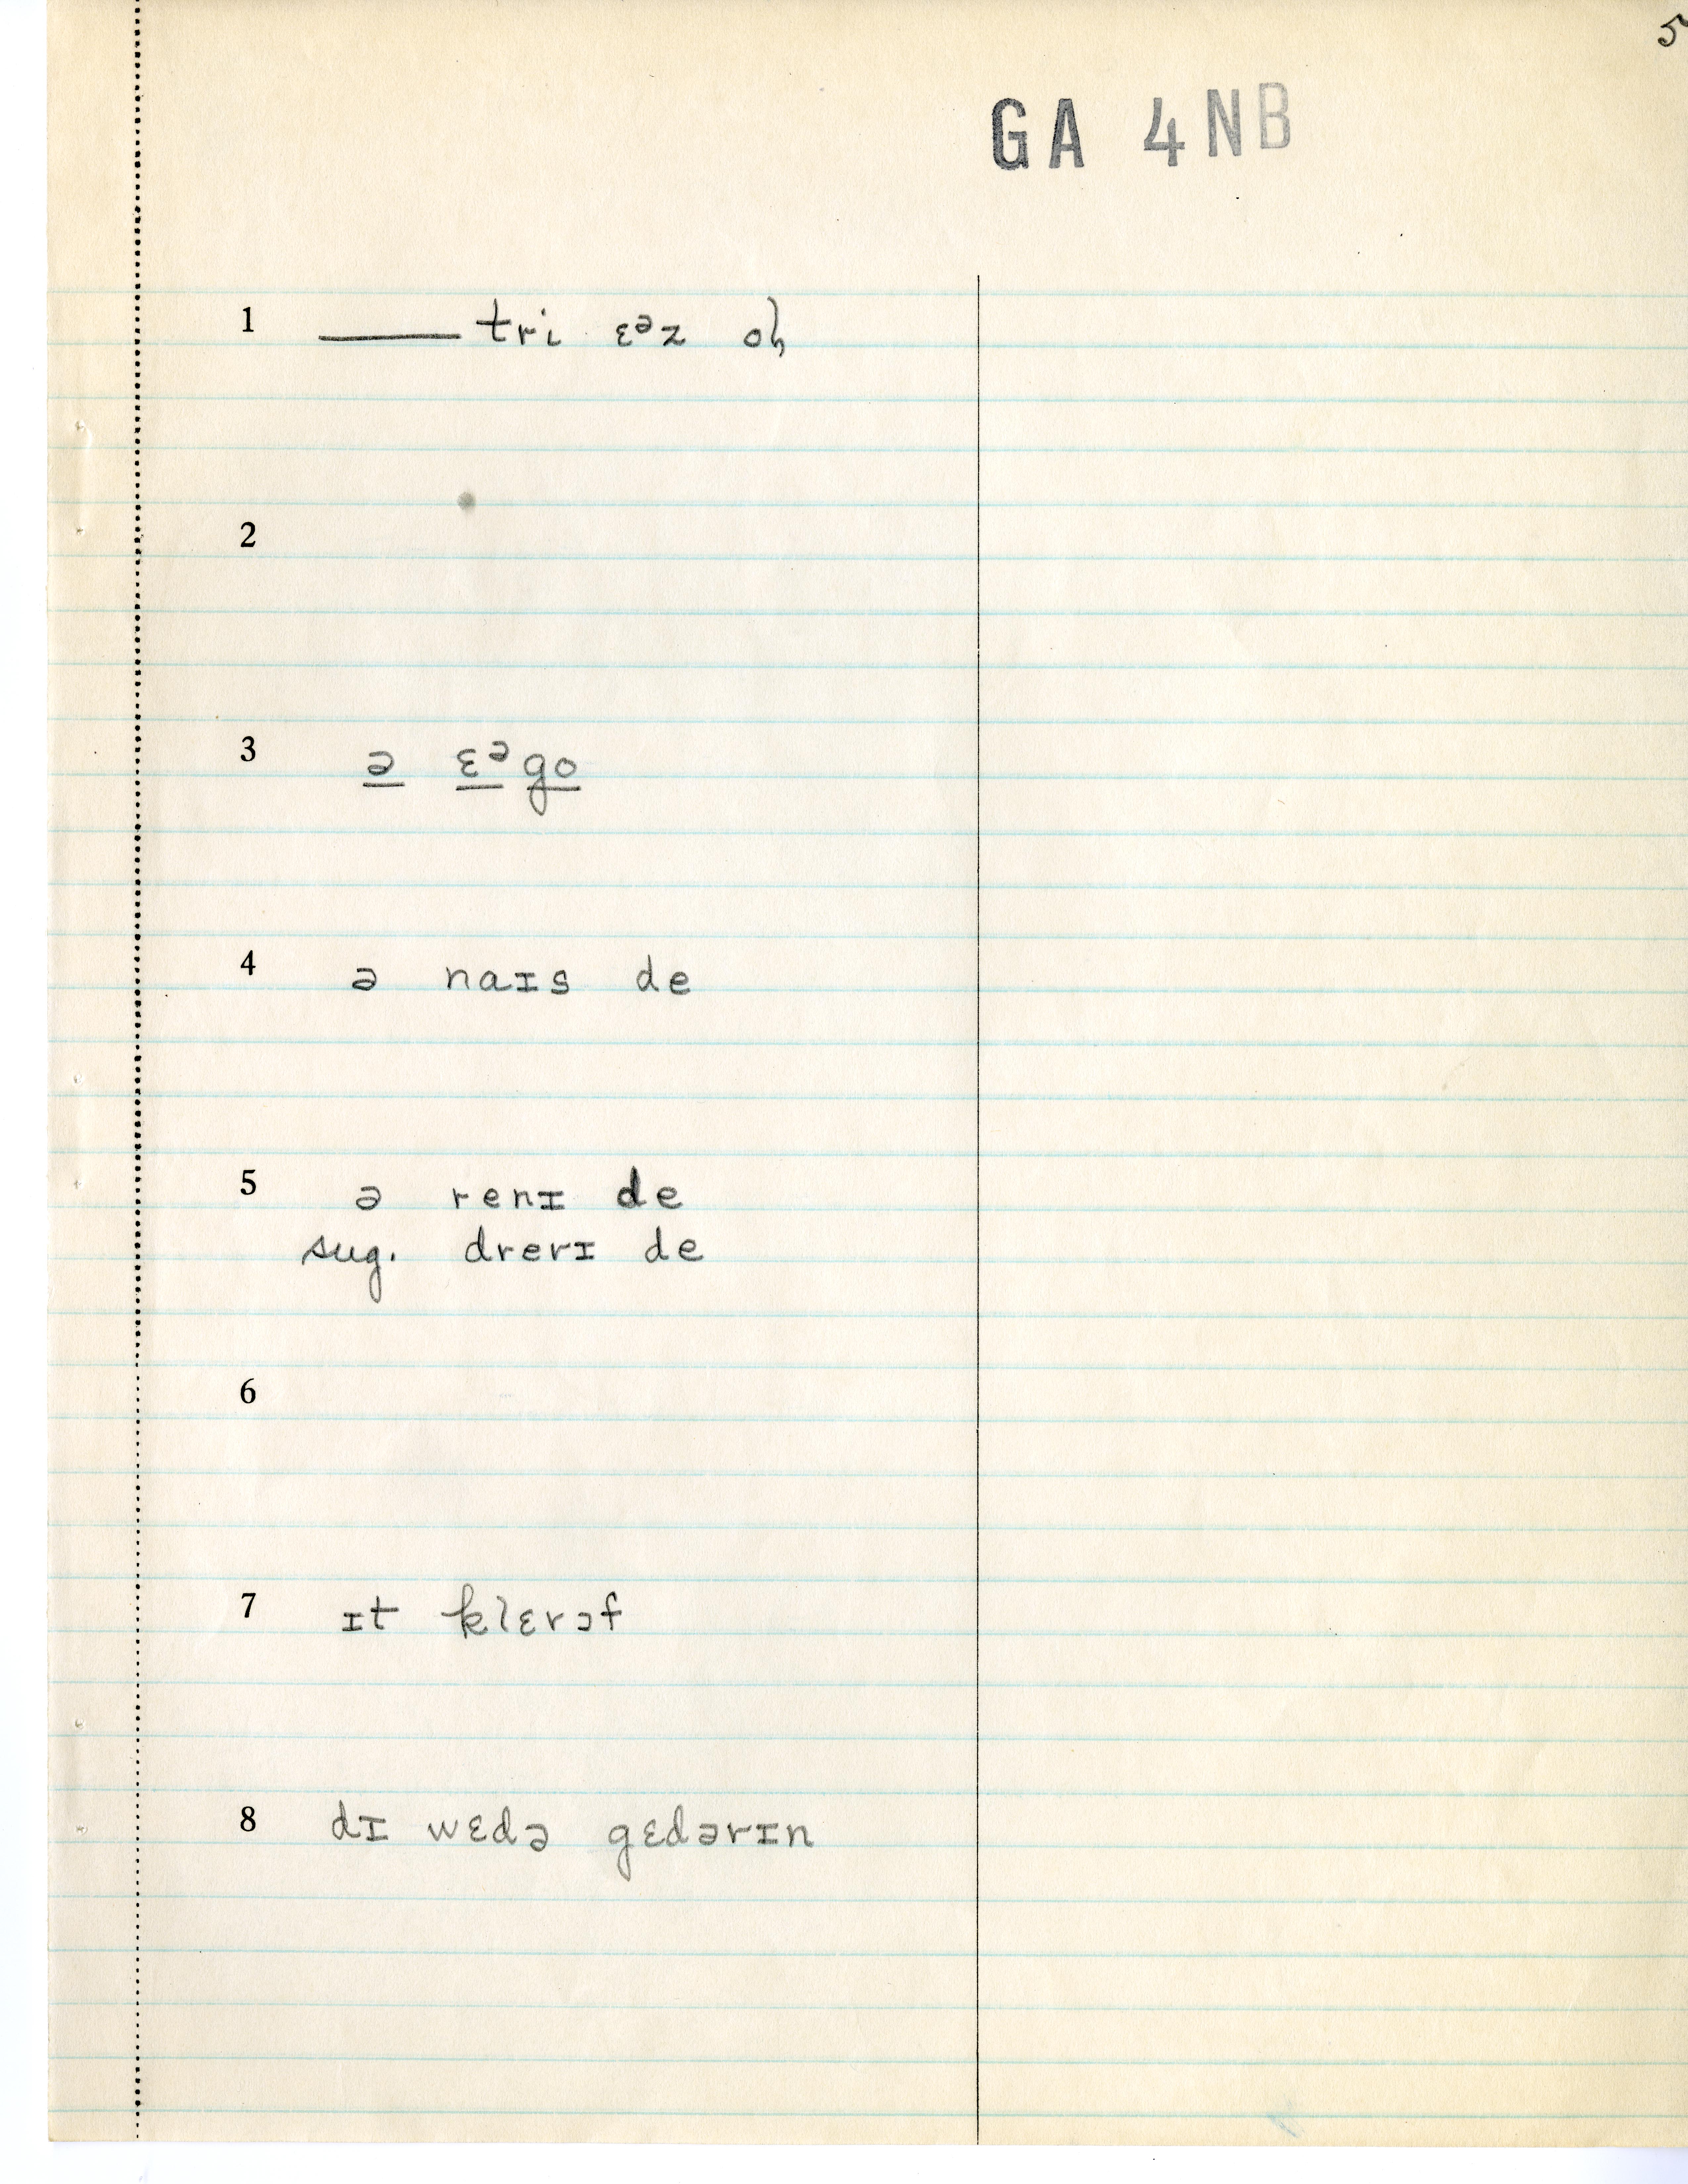 5
GA 4NB
1 —— tri ɛᵊz oɦ
2
3 ə ɛᵊgo
4 ə naɪs de
5 ə renɪ de
sug. drerɪ de
6
7 ɪt klɛrɔf
8 dɪ wɛdə gɛdərɪn